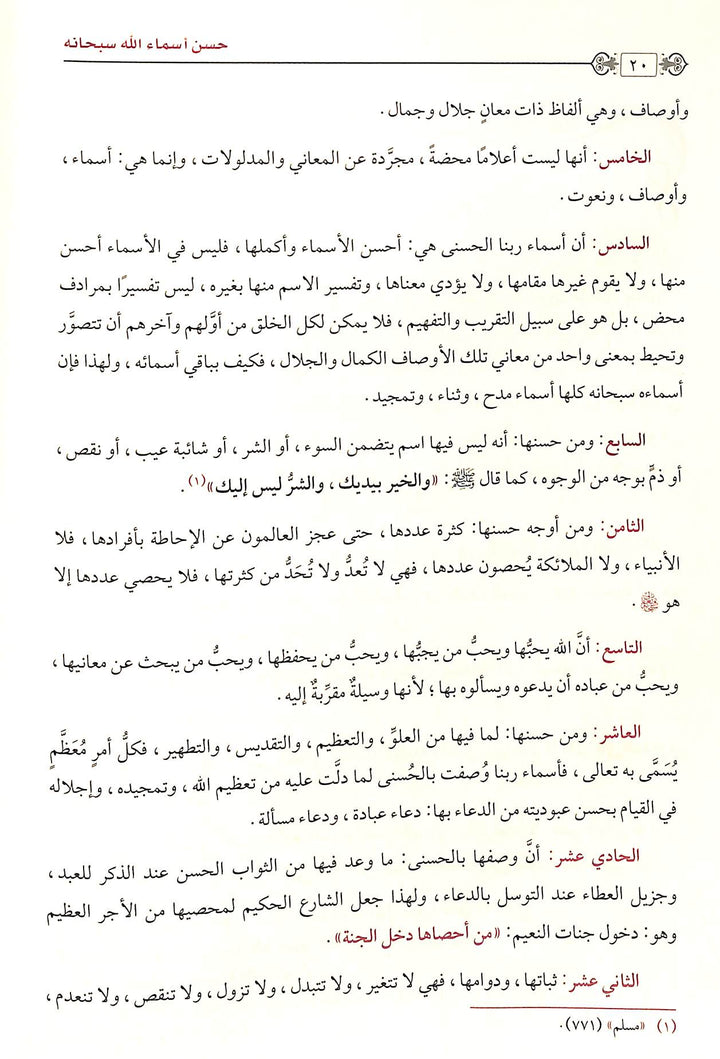 حسن أسماء الله سبحانه
٢٠
وأوصاف ، وهي ألفاظ ذات معانٍ جلال وجمال .
الخامس: أنها ليست أعلامًا محضةً ، مجرَّدة عن المعاني والمدلولات ، وإنما هي: أسماء ،
وأوصاف ، ونعوت .
السادس: أن أسماء ربنا الحسنى هي: أحسن الأسماء وأكملها ، فليس في الأسماء أحسن
منها ، ولا يقوم غيرها مقامها ، ولا يؤدي معناها ، وتفسير الاسم منها بغيره ، ليس تفسيرًا بمرادف
محض ، بل هو على سبيل التقريب والتفهيم ، فلا يمكن لكل الخلق من أوَّلهم وآخرهم أن تتصوَّر
وتحيط بمعنى واحد من معاني تلك الأوصاف الكمال والجلال ، فكيف بباقي أسمائه ، ولهذا فإن
أسماءه سبحانه كلها أسماء مدح ، وثناء ، وتمجيد .
السابع: ومن حسنها: أنه ليس فيها اسم يتضمن السوء ، أو الشر ، أو شائبة عيب ، أو نقص ،
أو ذمٍّ بوجه من الوجوه ، كما قال ﷺ: «والخير بيديك ، والشرُّ ليس إليك»(١) .
الثامن: ومن أوجه حسنها: كثرة عددها ، حتى عجز العالمون عن الإحاطة بأفرادها ، فلا
الأنبياء ، ولا الملائكة يُحصون عددها ، فهي لا تُعدُّ ولا تُحَدُّ من كثرتها ، فلا يحصي عددها إلا
هو .
التاسع: أنَّ الله يحبُّها ويحبُّ من يحبُّها ، ويحبُّ من يحفظها ، ويحبُّ من يبحث عن معانيها ،
ويحبُّ من عباده أن يدعوه ويسألوه بها ؛ لأنها وسيلةٌ مقرِّبةٌ إليه .
العاشر: ومن حسنها: لما فيها من العلوِّ ، والتعظيم ، والتقديس ، والتطهير ، فكلُّ أمرٍ مُعَظَّمٍ
يُسَمَّى به تعالى ، فأسماء ربنا وُصفت بالحُسنى لما دلَّت عليه من تعظيم الله ، وتمجيده ، وإجلاله
في القيام بحسن عبوديته من الدعاء بها: دعاء عبادة ، ودعاء مسألة .
الحادي عشر: أنَّ وصفها بالحسنى: ما وعد فيها من الثواب الحسن عند الذكر للعبد ،
وجزيل العطاء عند التوسل بالدعاء ، ولهذا جعل الشارع الحكيم لمحصيها من الأجر العظيم
وهو: دخول جنات النعيم: «من أحصاها دخل الجنة» .
الثاني عشر: ثباتها ، ودوامها ، فهي لا تتغير ، ولا تتبدل ، ولا تزول ، ولا تنقص ، ولا تنعدم ،
(١) «مسلم» (٧٧١).